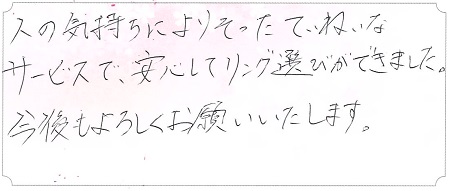 人の気持ちによりそったていねいな
サービスで、安心してリング選びができました。
今後もよろしくお願いいたします。